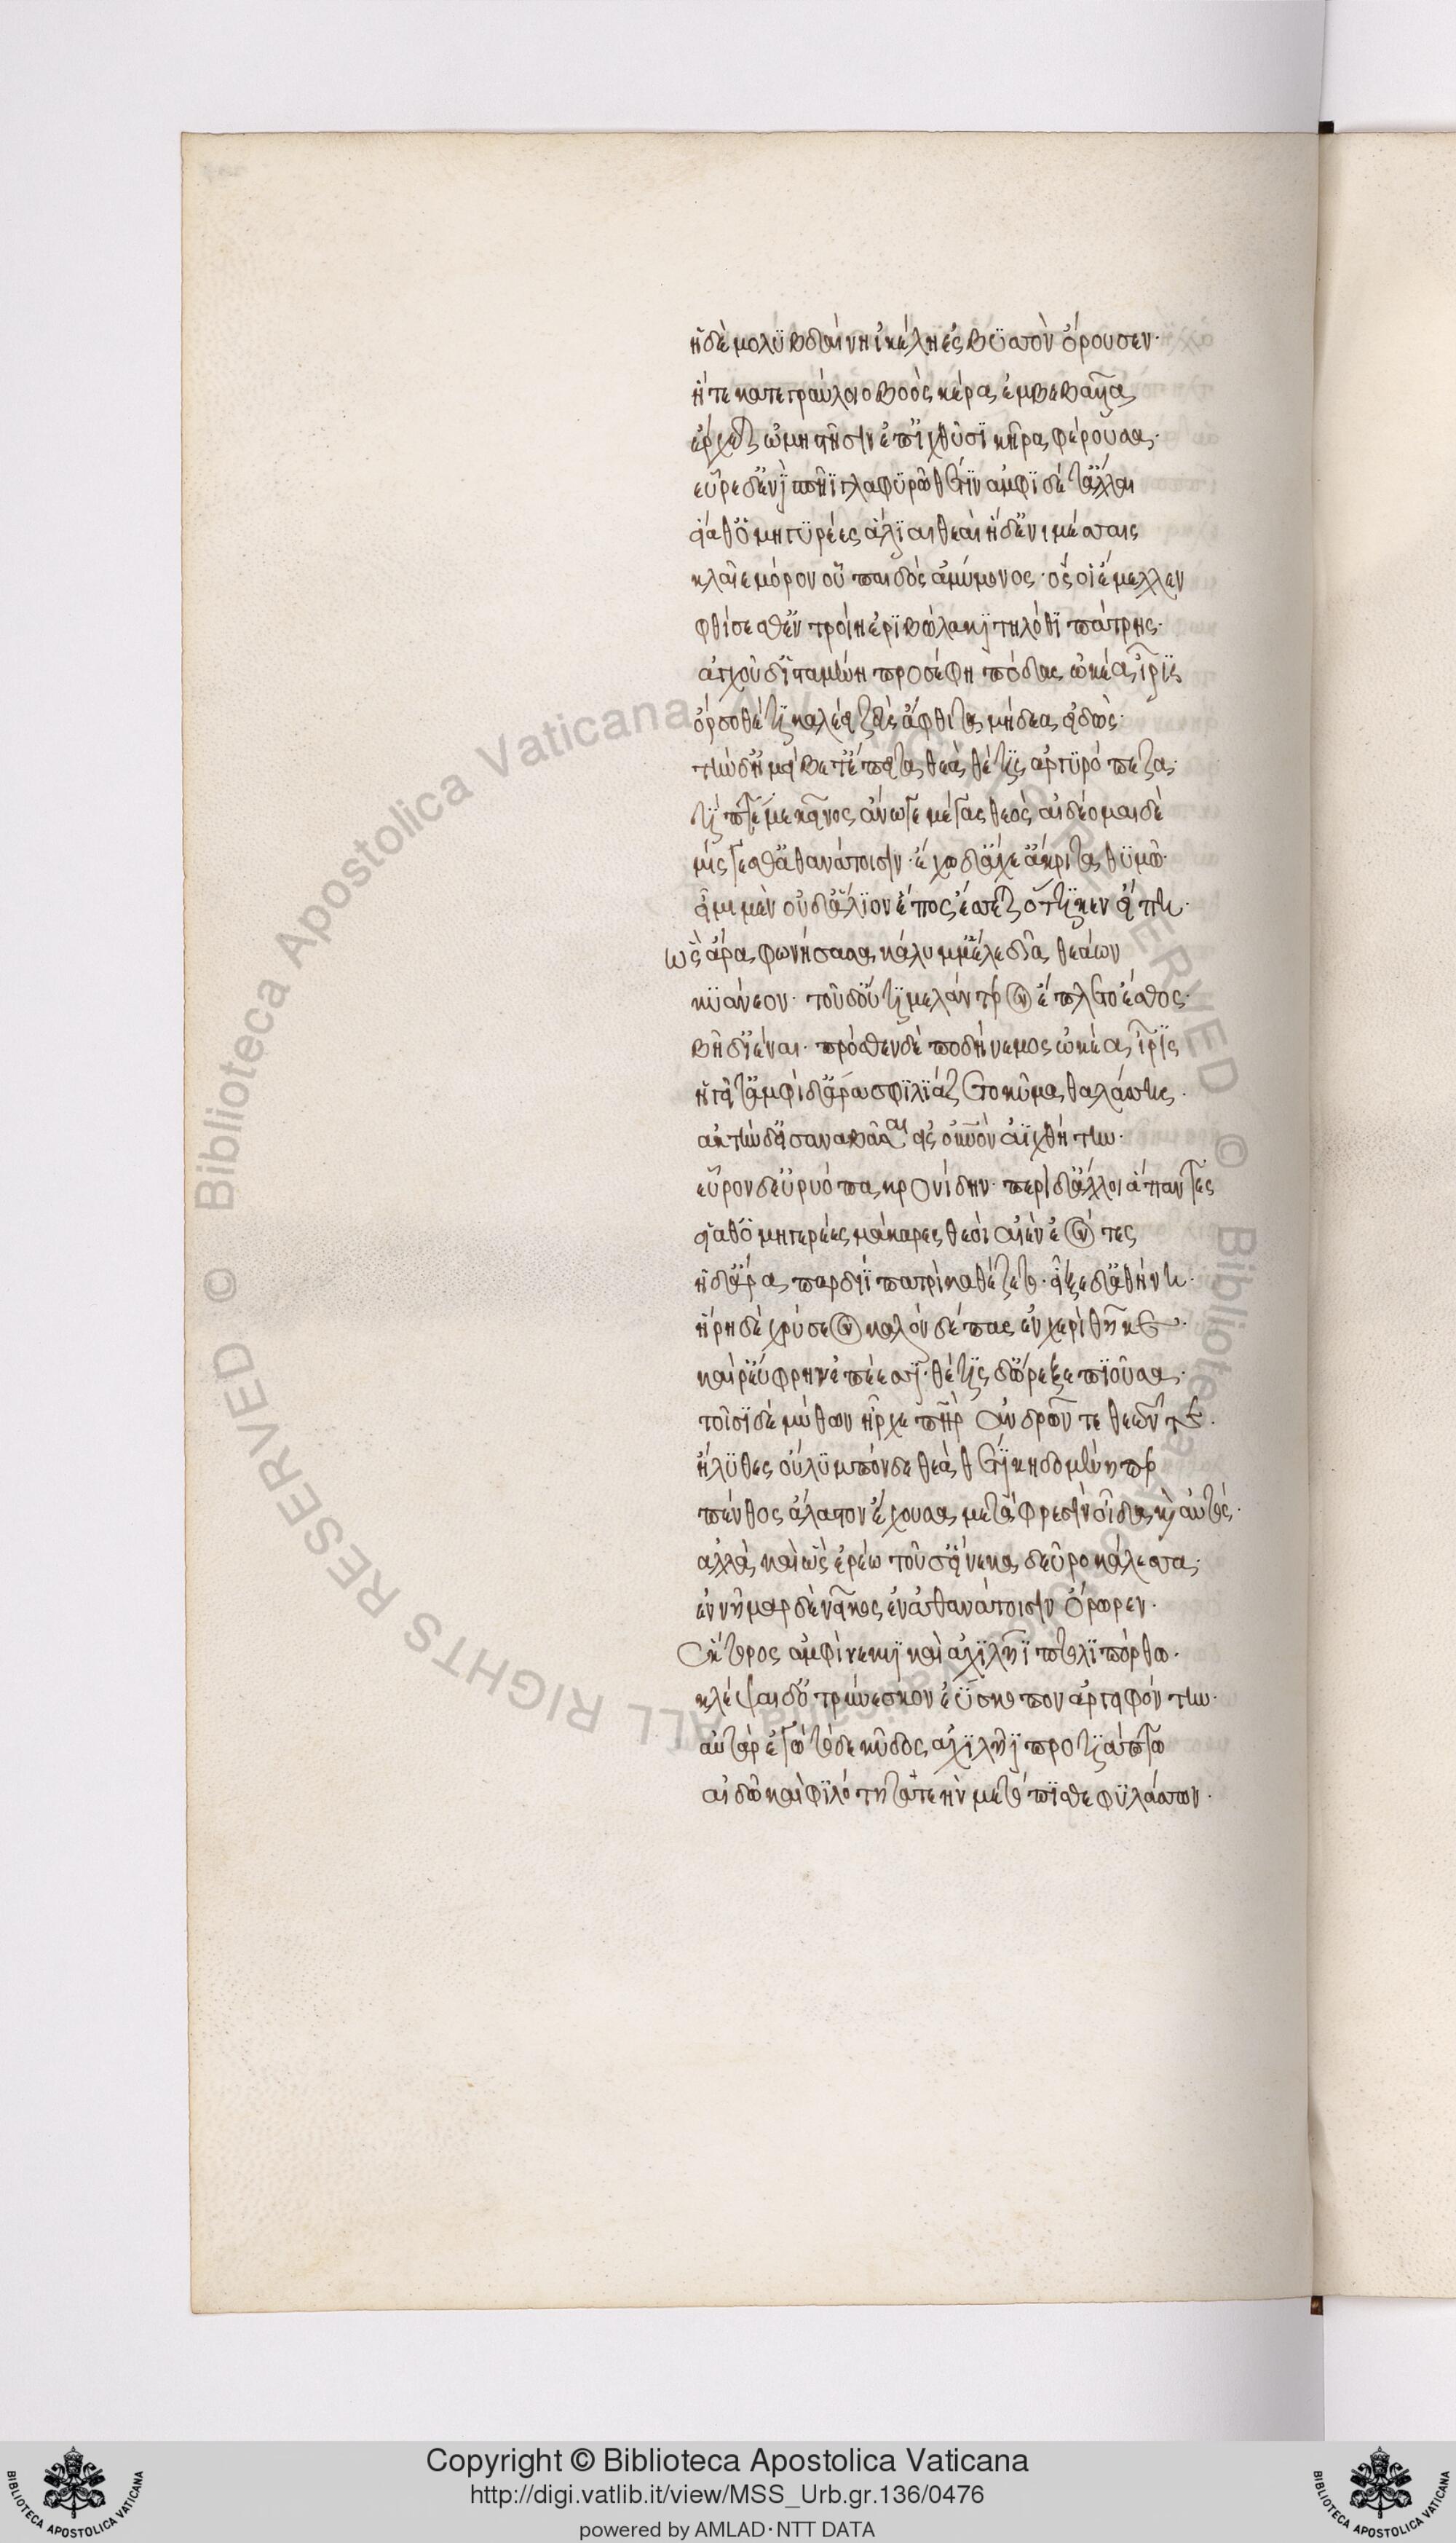 ἡ δὲ μολυβδαίνη ἰκέλη ἐς βυσσὸν ὄρουσεν·
ἥ τε κατ' ἀγραύλοιο βοὸς κέρας ἐμβεβαυῖα
ἔρχεται ὠμηστῇσιν ἐπ' ἰχθύσι κῆρα φέρουσα·
εὗρε δ' ἐνὶ σπῆϊ γλαφυρῷ Θέτιν ἀμφὶ δέ τ' ἄλλαι
εἵαθ' ὁμηγυρέες ἅλιαι θεαὶ ἡ δ' ἐνὶ μέσσαις
κλαῖε μόρον οὗ παιδὸς ἀμύμονος· ὅς οἱ ἔμελλεν
φθίσεσθ' ἐν τροίῃ ἐριβώλακι τηλόθι πάτρης·
ἀγχοῦ δ' ἱσταμένη προσέφη πόδας ὠκέα ἶρις
ὄρσο θέτι καλέει ζεὺς ἄφθιτα μήδεα εἰδώς·
τὴν δ' ἠμείβετ' ἔπειτα θεὰ θέτις ἀργυρόπεζα·
τίπτέ με κεῖνος ἄνωγε μέγας θεὸς αἰδέομαι δὲ
μίσγεσθ' ἀθανάτοισιν· ἔχω δ' ἄχε' ἄκριτα θυμῷ·
εἶμι μὲν οὐδ' ἅλιον ἔπος ἔσσεται ὅττι κεν εἴπῃ·
ὣς ἄρα φωνήσασα κάλυμμ' ἕλε δῖα θεάων
κυάνεον· τοῦ δ' οὔτι μελάντερον ἔπλετο ἔσθος·
βῆ δ' ἰέναι· πρόσθεν δὲ ποδήνεμος ὠκέα ἶρις
ἡγεῖτ' ἀμφὶ δ' ἄρα σφι λιάζετο κῦμα θαλάσσης·
ἀκτὴν δ' εἰσαναβᾶσαι ἐς οὐρανὸν ἀϊχθήτην·
εὗρον δ' εὐρύοπα κρονίδην· περὶ δ' ἄλλοι ἅπαντες
εἵαθ' ὁμηγερέες μάκαρες θεοὶ αἰὲν ἐόντες
ἡ δ' ἄρα παρ διῒ πατρὶ καθέζετο· εἶξε δ' ἀθήνη·
ἥρη δὲ χρύσεον καλὸν δέπας ἐν χερὶ θῆκε·
καί ῥ' εὔφρην' ἐπέεσσι· θέτις δ' ὤρεξε πιοῦσα·
τοῖσι δὲ μύθων ἦρχε πατὴρ ἀνδρῶν τε θεῶν τε·
ἤλυθες οὔλυμπόνδε θεὰ θέτι κηδομένη περ
πένθος ἄλαστον ἔχουσα μετὰ φρεσὶν οἶδα καὶ αὐτός·
ἀλλὰ καὶ ὣς ἐρέω τοῦ σ' εἵνεκα δεῦρο κάλεσσα·
ἐννῆμαρ δὲ νεῖκος ἐν ἀθανάτοισιν ὄρωρεν·
ἕκτορος ἀμφὶ νέκυι καὶ ἀχιλλῆϊ πτολιπόρθῳ·
κλέψαι δ' ὀτρύνεσκον ἐΰσκοπον ἀργειφόντην·
αὐτὰρ ἐγὼ τόδε κῦδος ἀχιλλῆϊ προτιάπτω
αἰδῶ καὶ φιλότητα τεὴν μετόπισθε φυλάσσων·
Copyright © Biblioteca Apostolica Vaticana
http://digi.vatlib.it/view/MSS_Urb.gr.136/0476
powered by AMLAD·NTT DATA